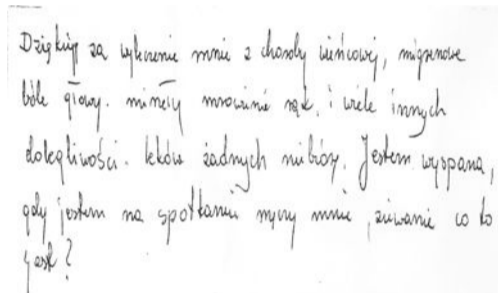 Dziękuję za wyleczenie mnie z choroby wieńcowej, migrenowe
bóle głowy. minęły mrowienie rąk. i wiele innych
dolegliwości. leków żadnych nie biorę. Jestem wyspana,
gdy jestem na spotkaniu męczy mnie, ziewanie co to
jest?